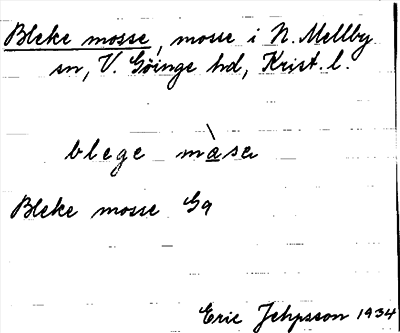 Bleke mosse, mosse i N. Mellby
sn, V. Göinge hd, Krist. l.
blege màsa
Bleke mosse Ga
Eric Jeppsson 1934